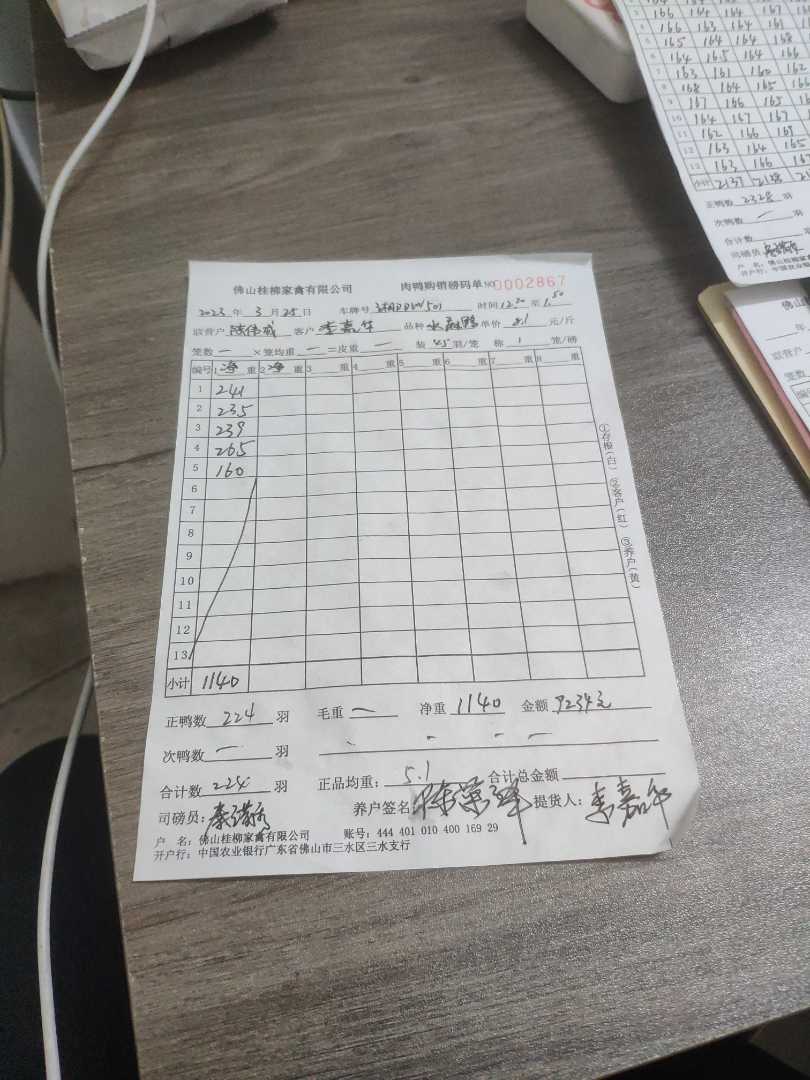 佛山桂柳家禽有限公司 肉鸭购销磅码单 NO 0002867
2023 年 3 月 25 日 车牌号 时间 12:30 至 1:50
联营户 陆伟成 客户 李嘉华 品种 水 单价 8.1 元/斤
笼数 — ×笼均重 — =皮重 — 装 45 羽/笼 称 1 笼/磅
编号 1 净 重 2 净 重 3 重 4 重 5 重 6 重 7 重 8 重
1 241
2 235
3 239
4 265
5 160
6
7
8
9
10
11
12
13
小计 1140
正鸭数 224 羽 毛重 — 净重 1140 金额 9234元
次鸭数 — 羽
合计数 224 羽 正品均重: 5.1 合计总金额
司磅员: 养户签名: 提货人: 李嘉华
户 名: 佛山桂柳家禽有限公司 账号: 444 401 010 400 169 29
开户行: 中国农业银行广东省佛山市三水区三水支行
①存根(白) ②客户(红) ③养户(黄)
166 164 164 167
166 163 164 161
165 164 164 168
164 165 164 166
7 163 161 160 162
8 168 164 165 166
9 167 166 165
10 164 167 167
11 162 166 169
12 163 164 165
13 163 166 167
小计 2137 2138 21
正鸭数 2328 羽
次鸭数 — 羽
合计数
司磅员:
户 名: 佛山桂柳家
开户行: 中国农业银
佛山
年
联营户
笼数
编号
1
2
3